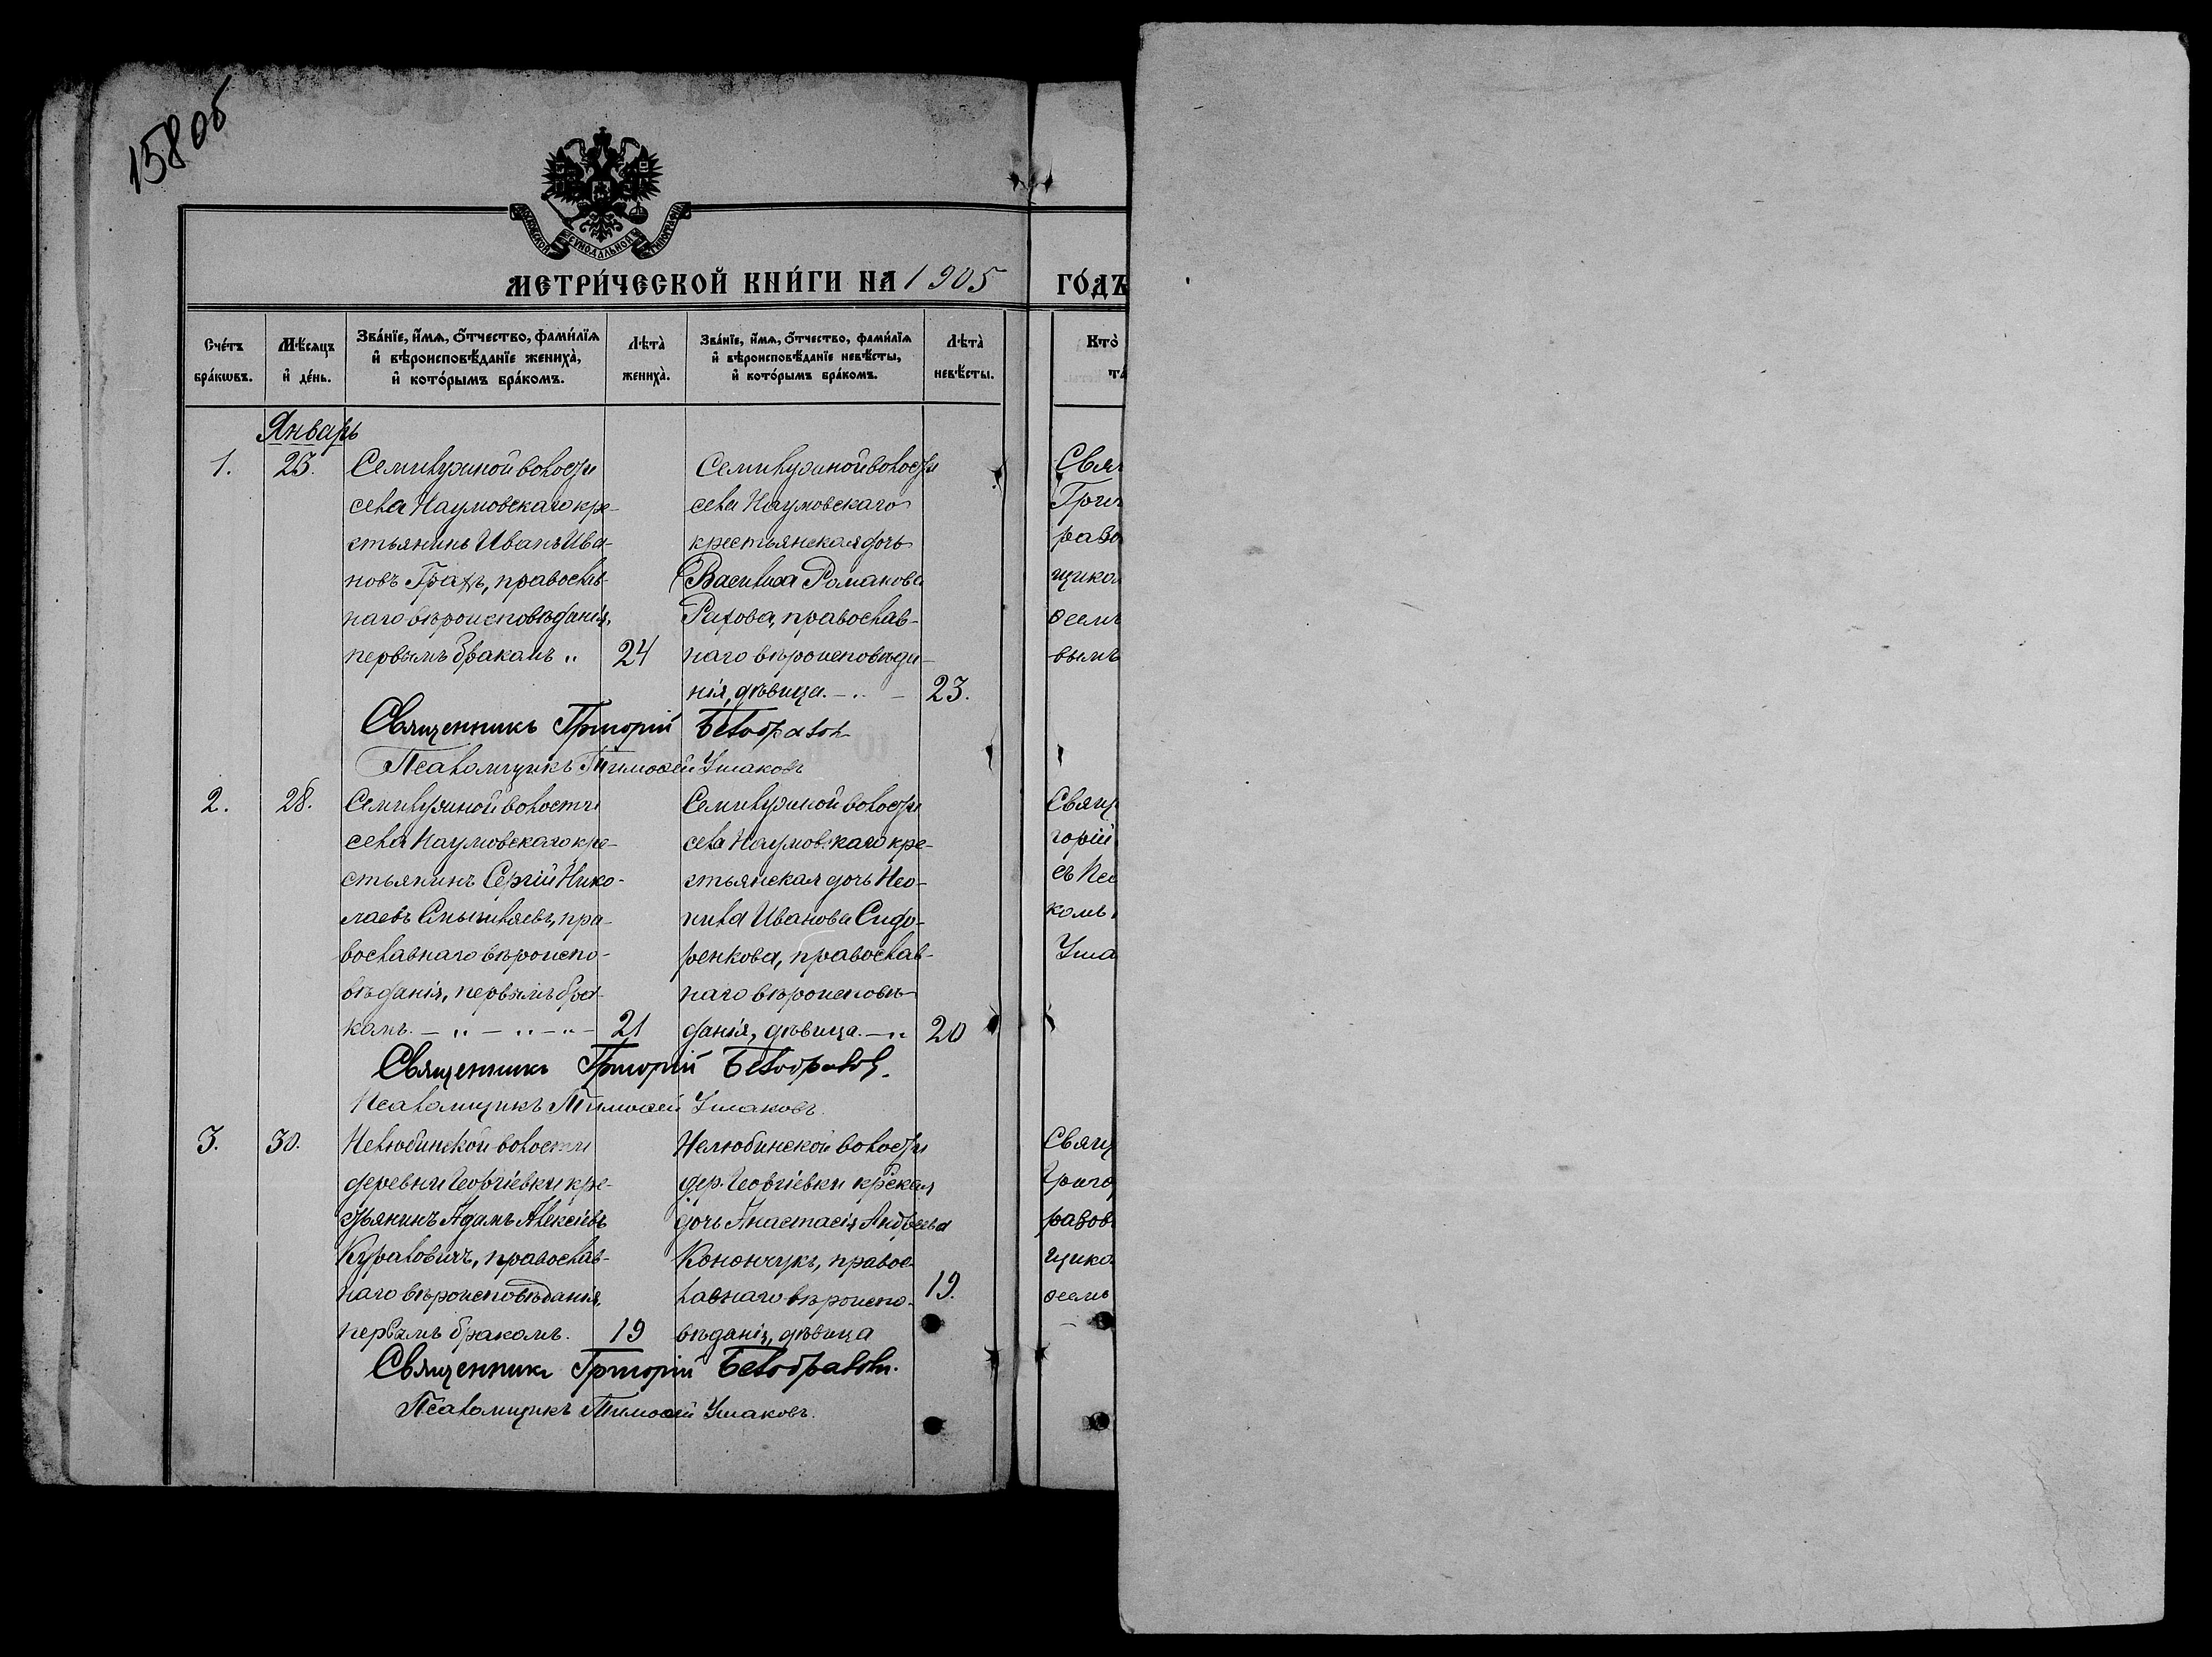 158 об
МОСКОВСКОЙ СѴНОДАЛЬНОЙ ТИПОГРАФІИ
МЕТРИ́ЧЕСКОЙ КНИ́ГИ НА 1905 ГО́ДЪ
Сче́тъ бра́кѡвъ.
Мѣ́сяцъ и҆ де́нь.
Зва́нїе, и҆́мѧ, ѻ҆́тчество, фами́лїѧ
и҆ вѣроисповѣ́данїе жениха̀,
и҆ кото́рымъ бра́комъ.
Лѣта̀ жениха̀.
Зва́нїе, и҆́мѧ, ѻ҆́тчество, фами́лїѧ
и҆ вѣроисповѣ́данїе невѣ́сты,
и҆ кото́рымъ бра́комъ.
Лѣта̀ невѣ́сты.
Кто̀
та
Январь
1. 23.
Семилужной волости
села Наумовскаго кре-
стьянинъ Иванъ Ива-
новъ православ-
наго вѣроисповѣданія,
первымъ бракомъ „ 24
Семилужной волости
села Наумовскаго
крестьянская дочь
Василиса Романова
православ-
наго вѣроисповѣда-
нія, дѣвица. - „ - 23.
Свящ
Григ
разо
щико
ѳеем
вымъ
Священникъ Григорій Бѣлобразов
Псаломщикъ Тимоѳей Ушаковъ
2. 28.
Семилужной волости
села Наумовскаго кре-
стьянинъ Сергій Нико-
лаевъ Смышляевъ, пра-
вославнаго вѣроиспо-
вѣданія, первымъ бра-
комъ. - „ - „ - „ - 21
Семилужной волости
села Наумовскаго кре-
стьянская дочь Нео-
нила Иванова Сидо-
ренкова, православ-
наго вѣроисповѣ-
данія, дѣвица. - „ 20
Свящ
горій
съ Пса
комъ
Уша
Священникъ Григорій Бѣлобразов.
Псаломщикъ Тимоѳей Ушаковъ.
3. 30.
Нелюбинской волости
деревни Георгіевки кре-
стьянинъ Адамъ Алексіевъ
Куралович, православ-
наго вѣроисповѣданія,
первымъ бракомъ. 19
Нелюбинской волости
дер. Георгіевки кр̃ская
дочь Анастасія Андреева
Конончукъ, правос-
лавнаго вѣроиспо-
вѣданія, дѣвица
19.
Свящ
Григо
разов
щико
ѳеемъ
Священникъ Григорій Бѣлобразовъ.
Псаломщикъ Тимоѳей Ушаковъ.